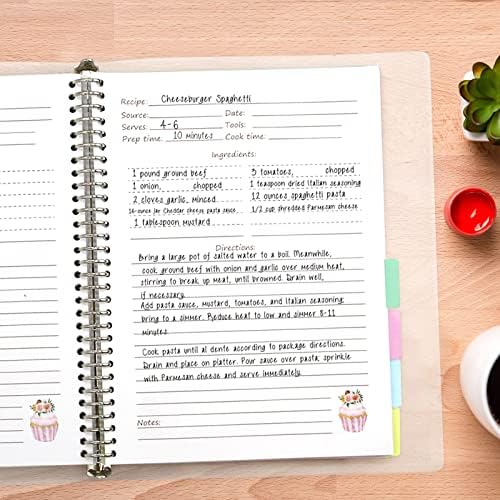 Recipe: Cheeseburger Spaghetti
Source: Date:
Serves: 4-6 Tools:
Prep time: 10 minutes Cook time:
Ingredients:
1 pound ground beef 5 tomatoes, chopped
1 onion, chopped 1 teaspoon dried Italian seasoning
2 cloves garlic, minced 12 ounces spaghetti pasta
16-ounce jar Cheddar cheese pasta sauce 1/2 cup shredded Parmesan cheese
1 tablespoon mustard
Directions:
Bring a large pot of salted water to a boil. Meanwhile,
cook ground beef with onion and garlic over medium heat,
stirring to break up meat, until browned. Drain well,
if necessary.
Add pasta sauce, mustard, tomatoes, and Italian seasoning;
bring to a simmer. Reduce heat to low and simmer 8-11
minutes
Cook pasta until al dente according to package directions.
Drain and place on platter. Pour sauce over pasta; sprinkle
with Parmesan cheese and serve immediately.
Notes: